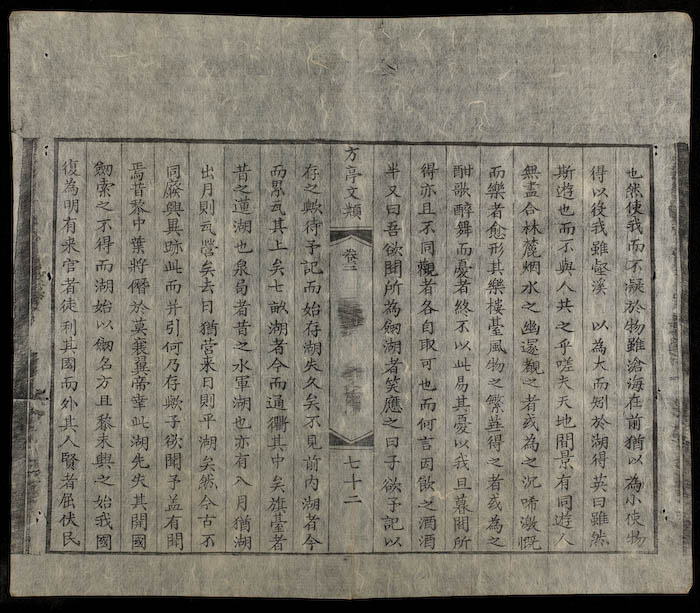 也然使我而不凝於物雖滄海在前猶以為小使物
得以後我雖壑溪 以為大而矧於湖得英曰雖然
斯遊也而不與人共之乎嗟夫天地間景有同遊人
無盡合林麓烟水之幽邃觀之者或為之沉唏激慨
而樂者愈形其樂樓臺風物之繁華得之者或為之
酣歌醉舞而憂者終不以此易其憂以我旦暮間所
得亦且不同觀者各自取可也而何言因飲之酒酒
半又曰吾欲聞所為劒湖者笑應之曰子欲予記以
方亭文類 卷二 七十二
存之歟待予記而始存湖失久矣不見前內湖者今
而累瓦其上矣七畝湖者今而通衢其中矣旗臺者
昔之蓮湖也泉局者昔之水軍湖也亦有八月猶湖
出月則瓦營矣去日猶營來日則平湖矣然今古不
同廢興異跡此而并引何乃存歟子欲聞予盖有聞
焉昔黎中葉將僭於莫襄翼帝幸此湖先失其開國
劒索之不得而湖始以劒名方且黎末興之始我國
復為明有来官者徒利其國而外其人賢者屈伏民